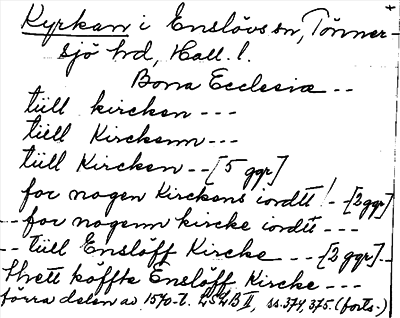 Kyrkan i Enslövs sn, Tönner-
sjö hd, Hall. l.
Bona Ecclesia --
tiill kircken ---
tiill Kirckenn ---
tiill Kircken -- [5 ggr]
for nogen Kirckens iordtt! - [2 ggr]
-- for nogenn kircke iordtt ---
-- tiill Enslöff Kircke -- [2 ggr] -
köffte Enslöff Kircke ---
förra delen av 1570-t. LSLB II, ss. 374, 375. (forts.)